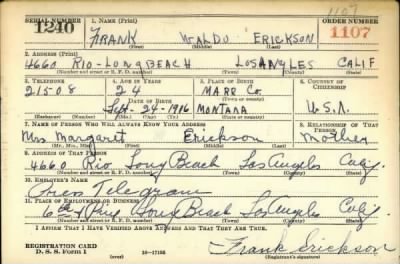 1107
SERIAL NUMBER 1. NAME (Print) ORDER NUMBER
1240 FRANK WALDO ERICKSON 1107
(First) (Middle) (Last)
2. ADDRESS (Print)
4660 RIO - LONG BEACH LOS ANGLES CALIF
(Number and street or R. F. D. number) (Town) (County) (State)
3. TELEPHONE 4. AGE IN YEARS 5. PLACE OF BIRTH 6. COUNTRY OF CITIZENSHIP
21508 24 MARR Co.
DATE OF BIRTH
Sept - 24 - 1916 MONTANA U.S.A.
(Mo.) (Day) (Yr.) (State or country)
7. NAME OF PERSON WHO WILL ALWAYS KNOW YOUR ADDRESS 8. RELATIONSHIP OF THAT PERSON
Mrs Margaret Erickson Mother
(Mr., Mrs., Miss) (First) (Middle) (Last)
9. ADDRESS OF THAT PERSON
4660 Rio Long Beach Los Angeles Calif.
(Number and street or R. F. D. number) (Town) (County) (State)
10. EMPLOYER'S NAME
Press Telegram
11. PLACE OF EMPLOYMENT OR BUSINESS
6th & Pine Long Beach Los Angeles Calif.
(Number and street or R. F. D. number) (Town) (County) (State)
I AFFIRM THAT I HAVE VERIFIED ABOVE ANSWERS AND THAT THEY ARE TRUE.
REGISTRATION CARD
D. S. S. Form 1 16-17105 Frank Erickson
(Registrant's signature)